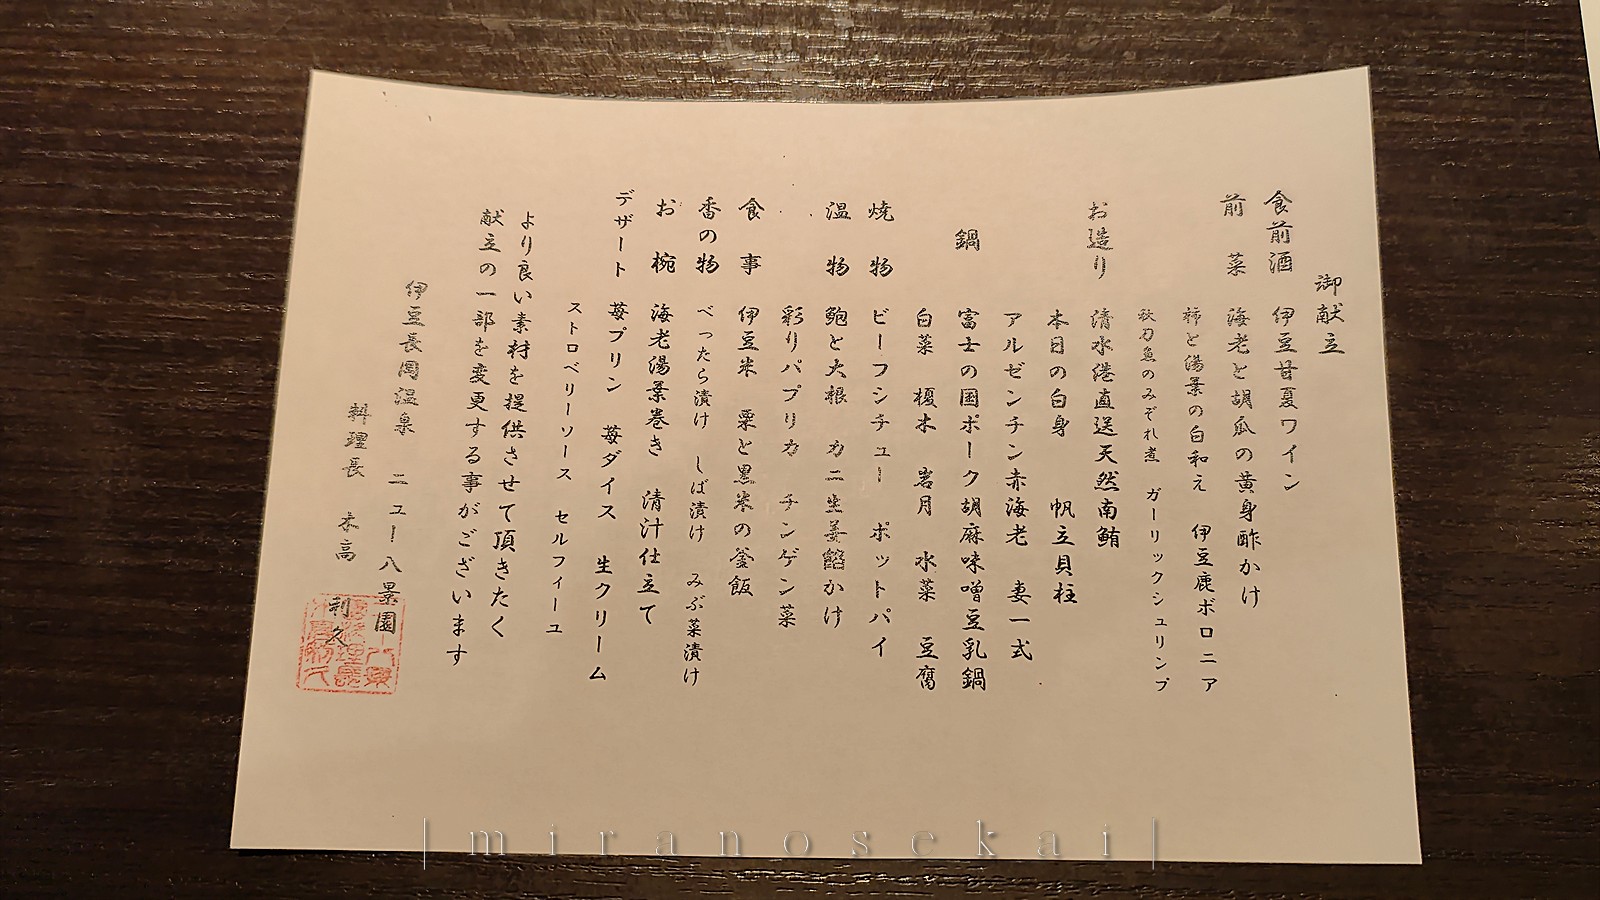 御献立
食前酒 伊豆甘夏ワイン
前菜 海老と胡瓜の黄身酢かけ
柿と湯葉の白和え 伊豆鹿ボロニア
秋刀魚のみぞれ煮 ガーリックシュリンプ
お造り 清水港直送天然南鮪
本日の白身 帆立貝柱
アルゼンチン赤海老 妻一式
鍋 富士の国ポーク胡麻味噌豆乳鍋
白菜 榎木 岩月 水菜 豆腐
焼物 ビーフシチュー ポットパイ
温物 鮑と大根 カニ生姜餡かけ
彩りパプリカ チンゲン菜
食事 伊豆米 栗と黒米の釜飯
香の物 べったら漬け しば漬け みぶ菜漬け
お椀 海老湯葉巻き 清汁仕立て
デザート 苺プリン 苺ダイス 生クリーム
ストロベリーソース セルフィーユ
より良い素材を提供させて頂きたく
献立の一部を変更する事がございます
伊豆長岡温泉 ニュー八景園
料理長 末高 利久
| m i r a n o s e k a i |